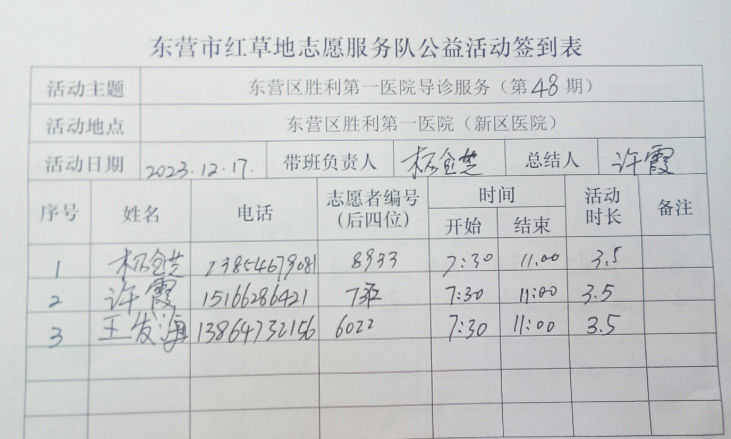 东营市红草地志愿服务队公益活动签到表
活动主题 东营区胜利第一医院导诊服务（第48期）
活动地点 东营区胜利第一医院（新区医院）
活动日期 2023.12.17. 带班负责人 总结人 许霞
序号 姓名 电话 志愿者编号（后四位） 时间 开始 结束 活动时长 备注
1 13854679081 8933 7:30 11.00 3.5
2 许霞 15166286421 7:30 11:00 3.5
3 王发海 13864732156 6022 7:30 11:00 3.5